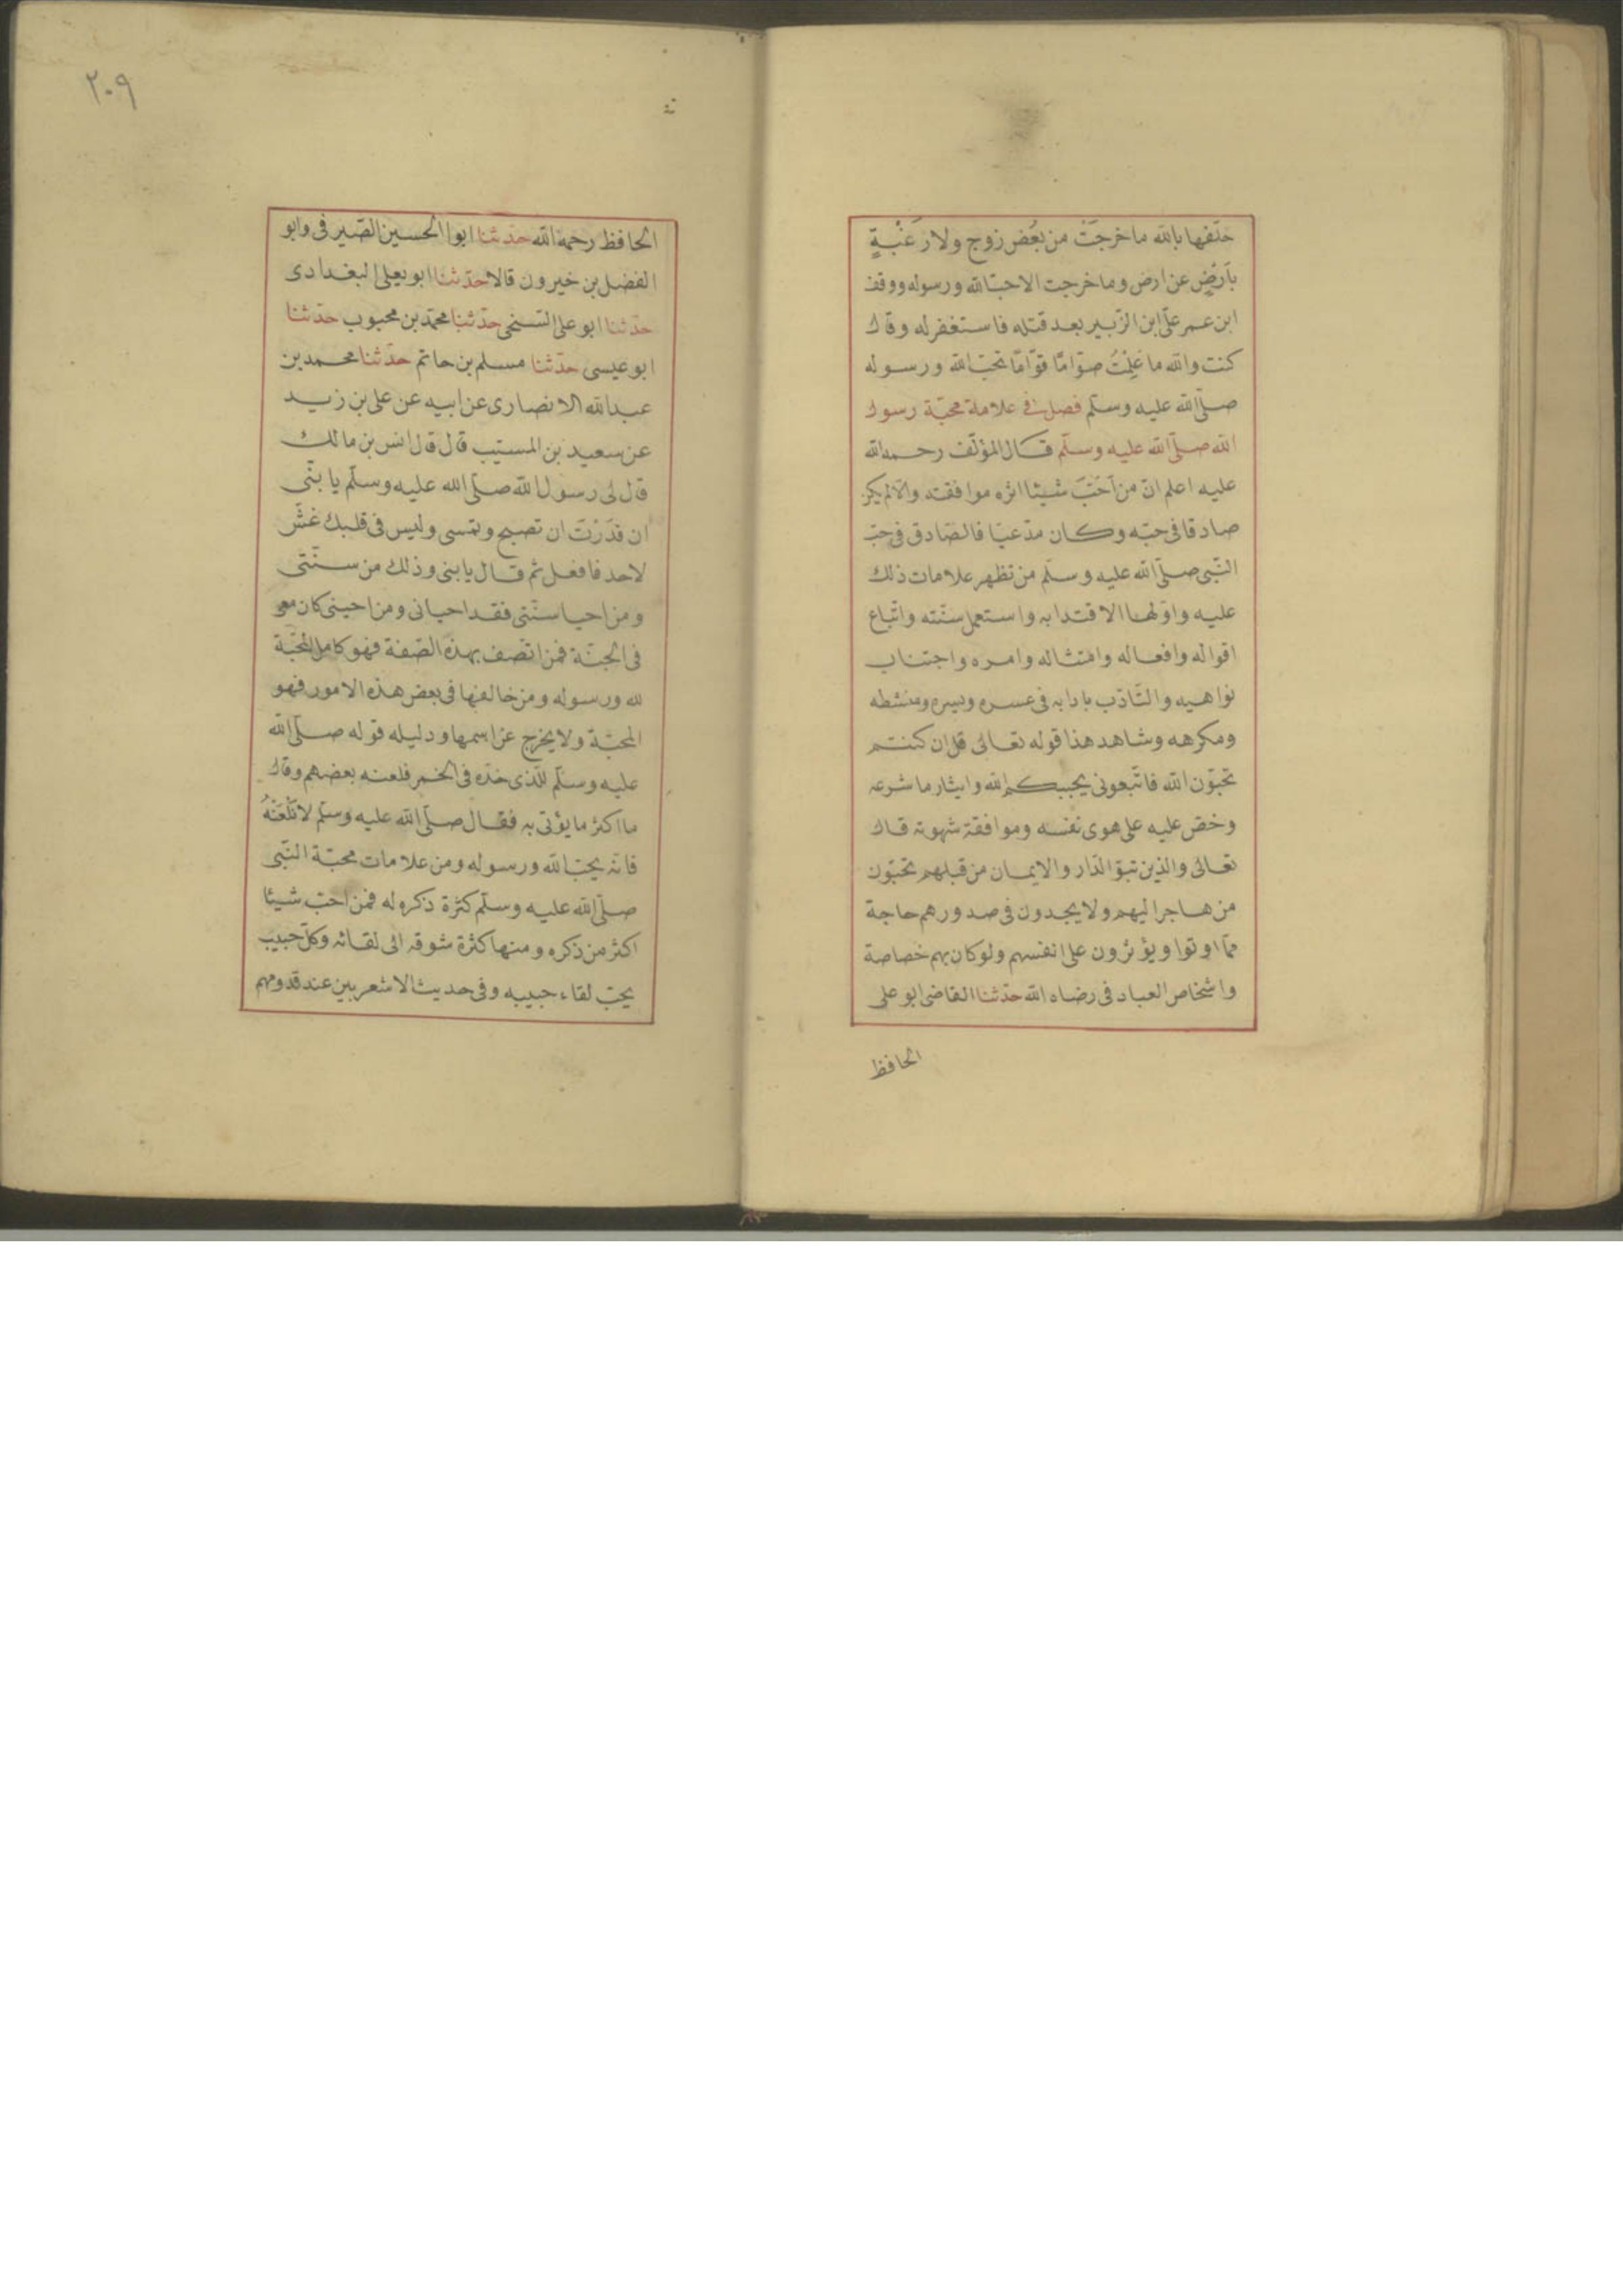 حلّفها بالله ما خرجَتْ من بُغض زوج ولا رَغْبةٍ
بأرْضٍ عن ارض وما خرجت الا حبّا لله ورسوله ووقف
ابن عمر على ابن الزّبير بعد قتله فاستغفر له وقال
كنت والله ما عَلِمْتُ صوّامًا قوّامًا تحبّ الله ورسوله
صلّى الله عليه وسلّم فصل في علامة محبّة رسول
الله صلّى الله عليه وسلّم قال المؤلّف رحمه الله
عليه اعلم انّ من اَحَبَّ شيئا اثره موافقته والّا لم يكن
صادقا في حبّه وكان مدّعيّا فالصّادق في حبّ
النّبى صلّى الله عليه وسلّم من تظهر علامات ذلك
عليه واوّلها الاقتدا به واستعمل سنّته واتّباع
اقواله وافعاله وامتثاله وامره واجتناب
نواهيه والتّادّب بادابه فى عسره ويسره ومنشطه
ومكرهه وشاهد هذا قوله تعالى قل ان كنتم
تحبّون الله فاتّبعونى يحببكم الله وايثار ما شرعه
وحضّ عليه على هوى نفسه وموافقة شهوته قال
تعالى والذين تبوّ الدّار والايمان من قبلهم تحبّون
من هاجر اليهم ولا يجدون فى صدورهم حاجة
ممّا اوتوا ويؤثرون على انفسهم ولو كان بهم خصاصة
واشخاص العباد فى رضاه الله حدّثنا القاضى ابو على
الحافظ
٢٠٩
الحافظ رحمه الله حدّثنا ابوا الحسين الصّيرفى وابو
الفضل بن خيرون قالا حدّثنا ابو يعلى البغدادى
حدّثنا ابو على السّنجى حدّثنا محمّد بن محبوب حدّثنا
ابو عيسى حدّثنا مسلم بن حاتم حدّثنا محمد بن
عبد الله الانصارى عن ابيه عن على بن زيد
عن سعيد بن المسيّب قال قال انس بن مالك
قال لى رسول الله صلّى الله عليه وسلّم يا بنّى
ان قدَرْتَ ان تصبح وتمسى وليس فى قلبك غشّ
لاحد فافعل ثم قال يا بنى وذلك من سنّتى
ومن احيا سنّتى فقد احيانى ومن احينى كان معى
فى الجنّة فمن اتّصف بهذه الصّفة فهو كامل المحبّة
لله ورسوله ومن خالفها فى بعض هذه الامور فهو
المحبّة ولا يخرج عن اسمها ودليله قوله صلّى الله
عليه وسلّم للّذى حدّه فى الخمر فلعنه بعضهم وقال
ما اكثر ما يؤتى به فقال صلّى الله عليه وسلّم لا تلْعَنْهُ
فانّه يحبّ الله ورسوله ومن علامات محبّة النّبى
صلّى الله عليه وسلّم كثرة ذكره له فمن احبّ شيئا
اكثر من ذكره ومنها كثرة شوقه الى لقائه وكلّ حبيب
يحبّ لقاء حبيبه وفى حديث الاشعريين عند قدومهم